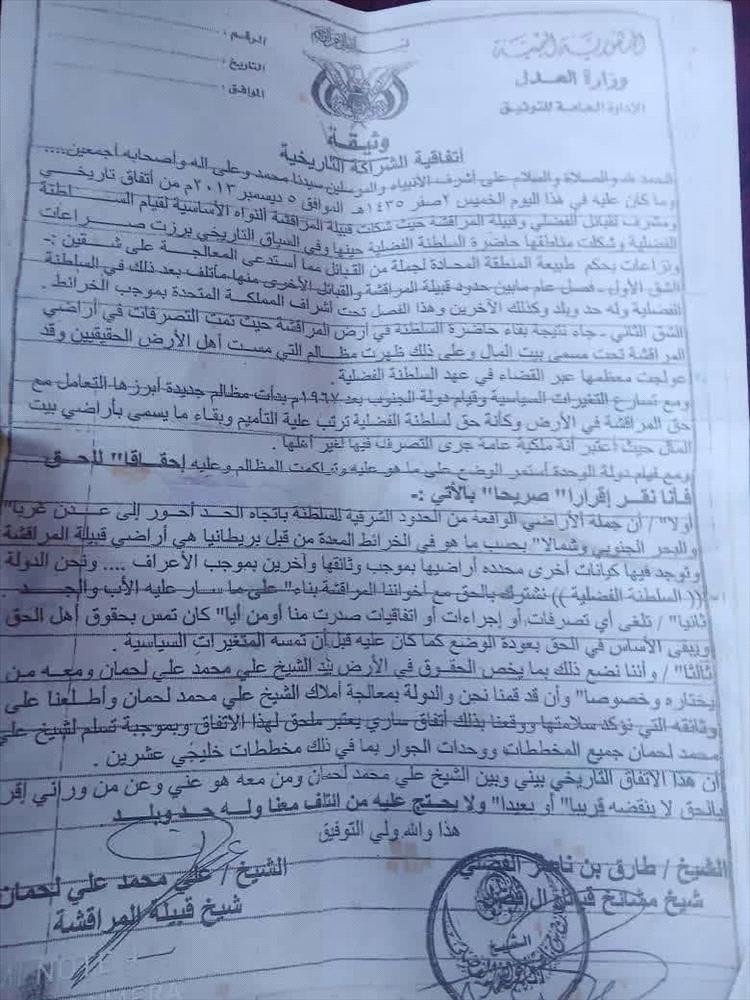 الجمهورية اليمنية
وزارة العدل
الإدارة العامة للتوثيق
الرقم :
التاريخ :
الموافق :
وثيقة
أتفاقية الشراكة التاريخية
الحمد لله والصلاة والسلام على أشرف الأنبياء والمرسلين سيدنا محمد وعلى الله وأصحابه أجمعين....
وما كان عليه في هذا اليوم الخميس ٢صفر ١٤٣٥هـ الموافق ٥ ديسمبر ٢٠١٣م من أتفاق تاريخي
ومشرف لقبائل الفضلي وقبيلة المراقشة حيث شكلت قبيلة المراقشة النواه الأساسية لقيام السلطنة
الفضلية وشكلت مناطقها حاضرة السلطنة الفضلية حينها وفي السياق التاريخي برزت صراعات
ونزاعات بحكم طبيعة المنطقة المحادة لجملة من القبائل مما أستدعى المعالجة على شقين :-
الشق الأول - فصل عام مابين حدود قبيلة المراقشة والقبائل الأخرى منها مأتلف بعد ذلك في السلطنة
الفضلية وله حد وبلد وكذلك الآخرين وهذا الفصل تحت أشراف المملكة المتحدة بموجب الخرائط .
الشق الثاني - جاء نتيجة بقاء حاضرة السلطنة في أرض المراقشة حيث تمت التصرفات في أراضي
المراقشة تحت مسمى بيت المال وعلى ذلك ظهرت مظالم التي مست أهل الأرض الحقيقيين وقد
عولجت معظمها عبر القضاء في عهد السلطنة الفضلية .
ومع تسارع التغيرات السياسية وقيام دولة الجنوب بعد ١٩٦٧م بدأت مظالم جديدة أبرزها التعامل مع
حق المراقشة في الأرض وكأنة حق لسلطنة الفضلية ترتب علية التأميم وبقاء ما يسمى بأراضي بيت
المال حيث أعتبر أنة ملكية عامه جرى التصرف فيها لغير أهلها .
ومع قيام دولة الوحدة أستمر الوضع على ما هو عليه وتراكمت المظالم وعليه إحقاقا" للحق
فأنا نقر إقرارا" صريحا" بالأتي :-
أولا" / أن جملة الأراضي الواقعه من الحدود الشرقية للسلطنة باتجاه الحد أحور إلى عدن غربا"
والبحر الجنوبي وشمالا" بحسب ما هو في الخرائط المعدة من قبل بريطانيا هي أراضي قبيلة المراقشة
وتوجد فيها كيانات أخرى محدده أراضيها بموجب وثائقها وآخرين بموجب الأعراف .... ونحن الدولة
(( السلطنة الفضلية )) نشترك بالحق مع أخواننا المراقشة بناء" على ما سار عليه الأب والجد .
ثانيا" / تلغى أي تصرفات أو إجراءات أو اتفاقيات صدرت منا أومن أيا" كان تمس بحقوق أهل الحق
ويبقى الأساس في الحق بعودة الوضع كما كان عليه قبل أن تمسه المتغيرات السياسية .
ثالثا" / وأننا نضع ذلك بما يخص الحقوق في الأرض بيد الشيخ علي محمد علي لحمان ومعه من
يختاره وخصوصا" وأن قد قمنا نحن والدولة بمعالجة أملاك الشيخ علي محمد لحمان وأطلعنا على
وثائقه التي نؤكد سلامتها ووقعنا بذلك أتفاق ساري يعتبر ملحق لهذا الاتفاق وبموجبة تسلم لشيخ علي
محمد لحمان جميع المخططات ووحدات الجوار بما في ذلك مخططات خليجي عشرين .
أن هذا الاتفاق التاريخي بيني وبين الشيخ علي محمد لحمان ومن معه هو عني وعن من ورائي إقر
بالحق لا ينقضه قريبا" أو بعيدا" ولا يحتج عليه من ائتلف معنا وله حد وبلد
هذا والله ولي التوفيق
الشيخ / طارق بن ناصر الفضلي
شيخ مشائخ قبائل ال فضل
الشيخ / علي محمد علي لحمان
شيخ قبيلة المراقشة
الشيخ
MI NOTE